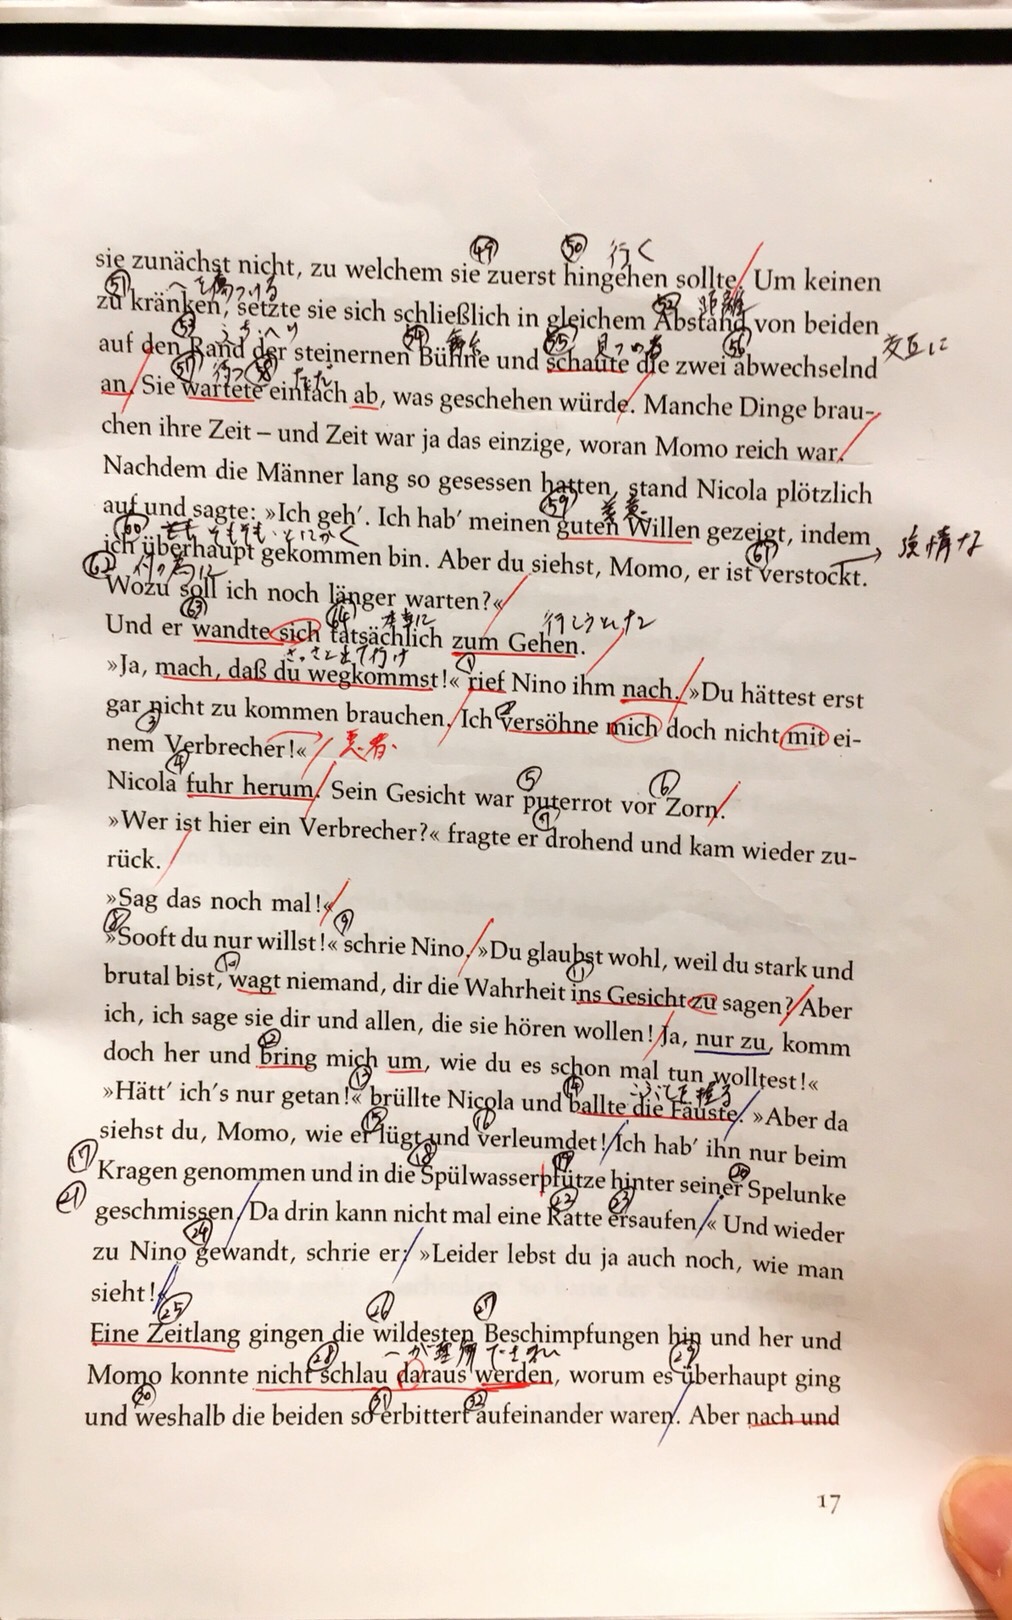 ㊾ ㊿ 行く
sie zunächst nicht, zu welchem sie zuerst hingehen sollte. Um keinen
51 を傷つける 52 距離
zu kränken, setzte sie sich schließlich in gleichem Abstand von beiden
53 ふち、へり 54 舞台 55 見つめる 56 交互に
auf den Rand der steinernen Bühne und schaute die zwei abwechselnd
57 待つ 58 ただ
an. Sie wartete einfach ab, was geschehen würde. Manche Dinge brau-
chen ihre Zeit – und Zeit war ja das einzige, woran Momo reich war.
Nachdem die Männer lang so gesessen hatten, stand Nicola plötzlich
59 善意
auf und sagte: »Ich geh’. Ich hab’ meinen guten Willen gezeigt, indem
60 そもそも・とにかく 61 強情な
ich überhaupt gekommen bin. Aber du siehst, Momo, er ist verstockt.
62 何の為に
Wozu soll ich noch länger warten?«
63 64 本当に 行こうとした
Und er wandte sich tatsächlich zum Gehen.
さっさと出て行け ①
»Ja, mach, daß du wegkommst!« rief Nino ihm nach. »Du hättest erst
②
gar nicht zu kommen brauchen. Ich versöhne mich doch nicht mit ei-
③
nem Verbrecher!« 悪者
④ ⑤ ⑥
Nicola fuhr herum. Sein Gesicht war puterrot vor Zorn.
⑦
»Wer ist hier ein Verbrecher?« fragte er drohend und kam wieder zu-
rück.
»Sag das noch mal!«
⑧ ⑨
»Sooft du nur willst!« schrie Nino. »Du glaubst wohl, weil du stark und
⑩ ⑪
brutal bist, wagt niemand, dir die Wahrheit ins Gesicht zu sagen? Aber
ich, ich sage sie dir und allen, die sie hören wollen! Ja, nur zu, komm
⑫
doch her und bring mich um, wie du es schon mal tun wolltest!«
⑬ ⑭ こぶしを握る
»Hätt’ ich’s nur getan!« brüllte Nicola und ballte die Fäuste. »Aber da
⑮ ⑯
siehst du, Momo, wie er lügt und verleumdet! Ich hab’ ihn nur beim
⑰ ⑱ ⑲ ⑳
Kragen genommen und in die Spülwasserpfütze hinter seiner Spelunke
㉑ ㉒ ㉓
geschmissen. Da drin kann nicht mal eine Ratte ersaufen.« Und wieder
㉔
zu Nino gewandt, schrie er: »Leider lebst du ja auch noch, wie man
sieht!«
㉕ ㉖ ㉗
Eine Zeitlang gingen die wildesten Beschimpfungen hin und her und
㉘ 〜が理解できない ㉙
Momo konnte nicht schlau daraus werden, worum es überhaupt ging
㉚ ㉛ ㉜
und weshalb die beiden so erbittert aufeinander waren. Aber nach und
17